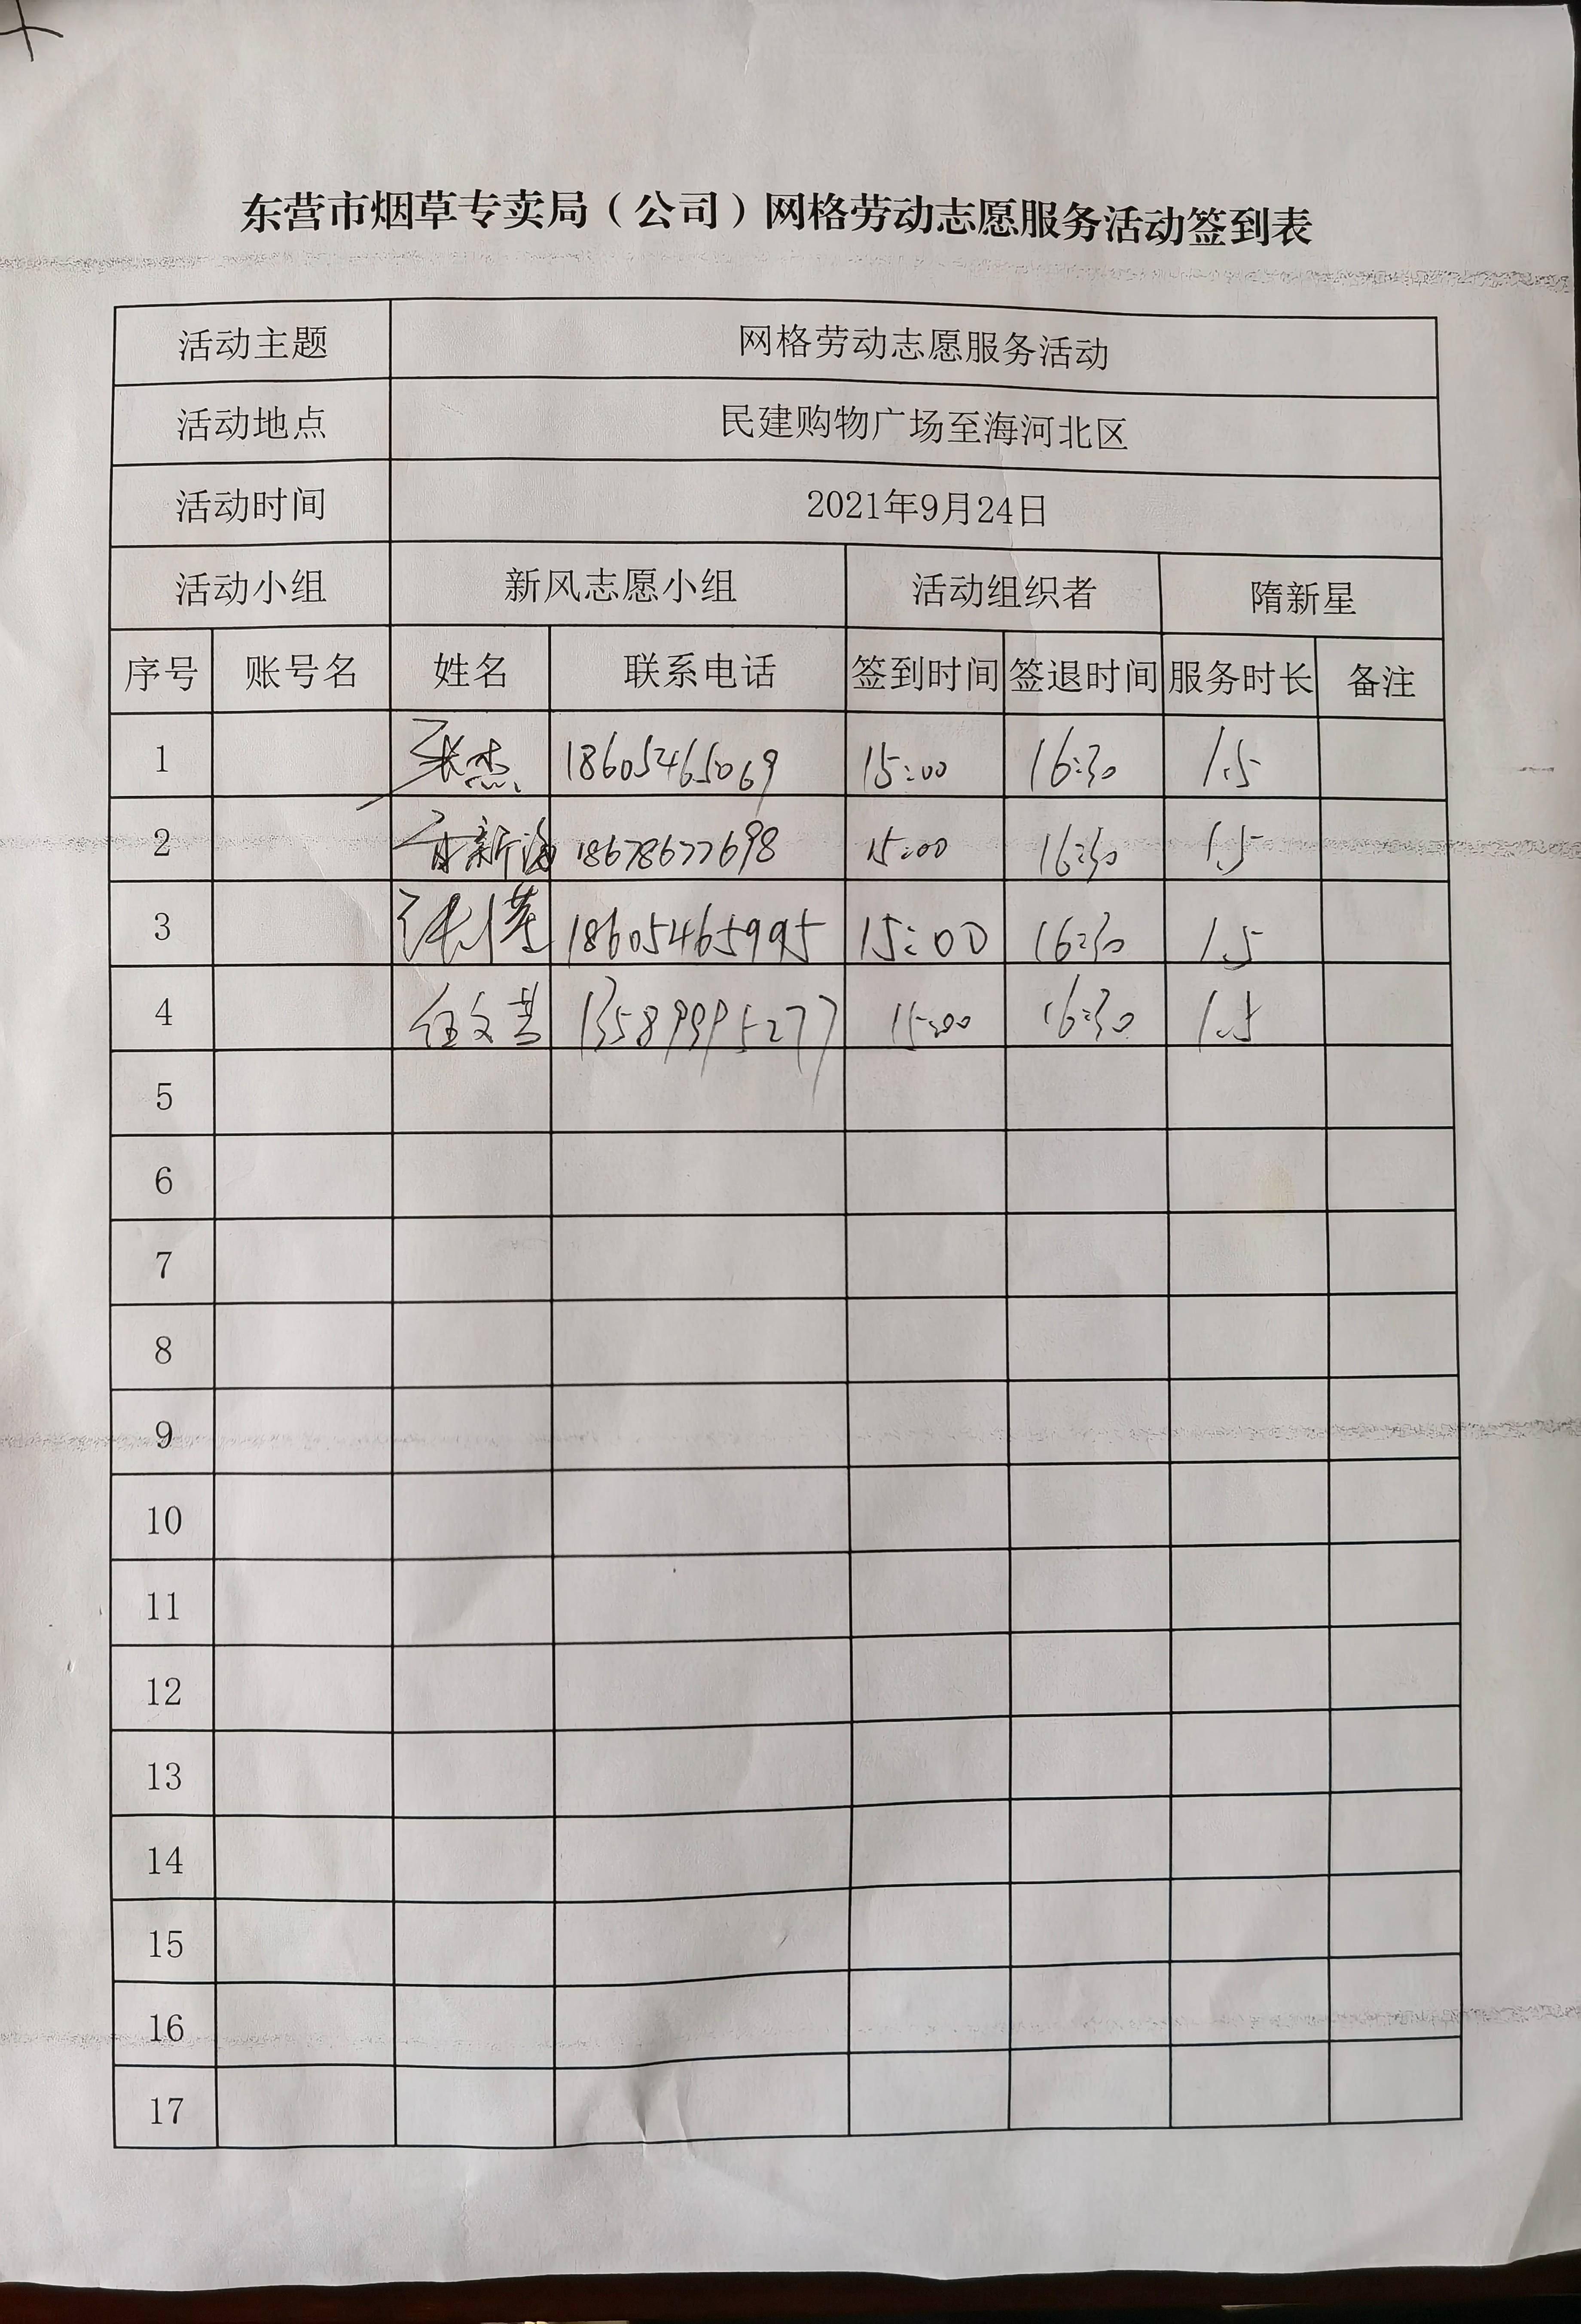 东营市烟草专卖局（公司）网格劳动志愿服务活动签到表
活动主题 网格劳动志愿服务活动
活动地点 民建购物广场至海河北区
活动时间 2021年9月24日
活动小组 新风志愿小组 活动组织者 隋新星
序号 账号名 姓名 联系电话 签到时间 签退时间 服务时长 备注
1 张杰 18605465069 15:00 16:30 1.5
2 18678677698 15:00 16:30 1.5
3 18605465995 15:00 16:30 1.5
4 任文 13589995277 15:00 16:30 1.5
5
6
7
8
9
10
11
12
13
14
15
16
17